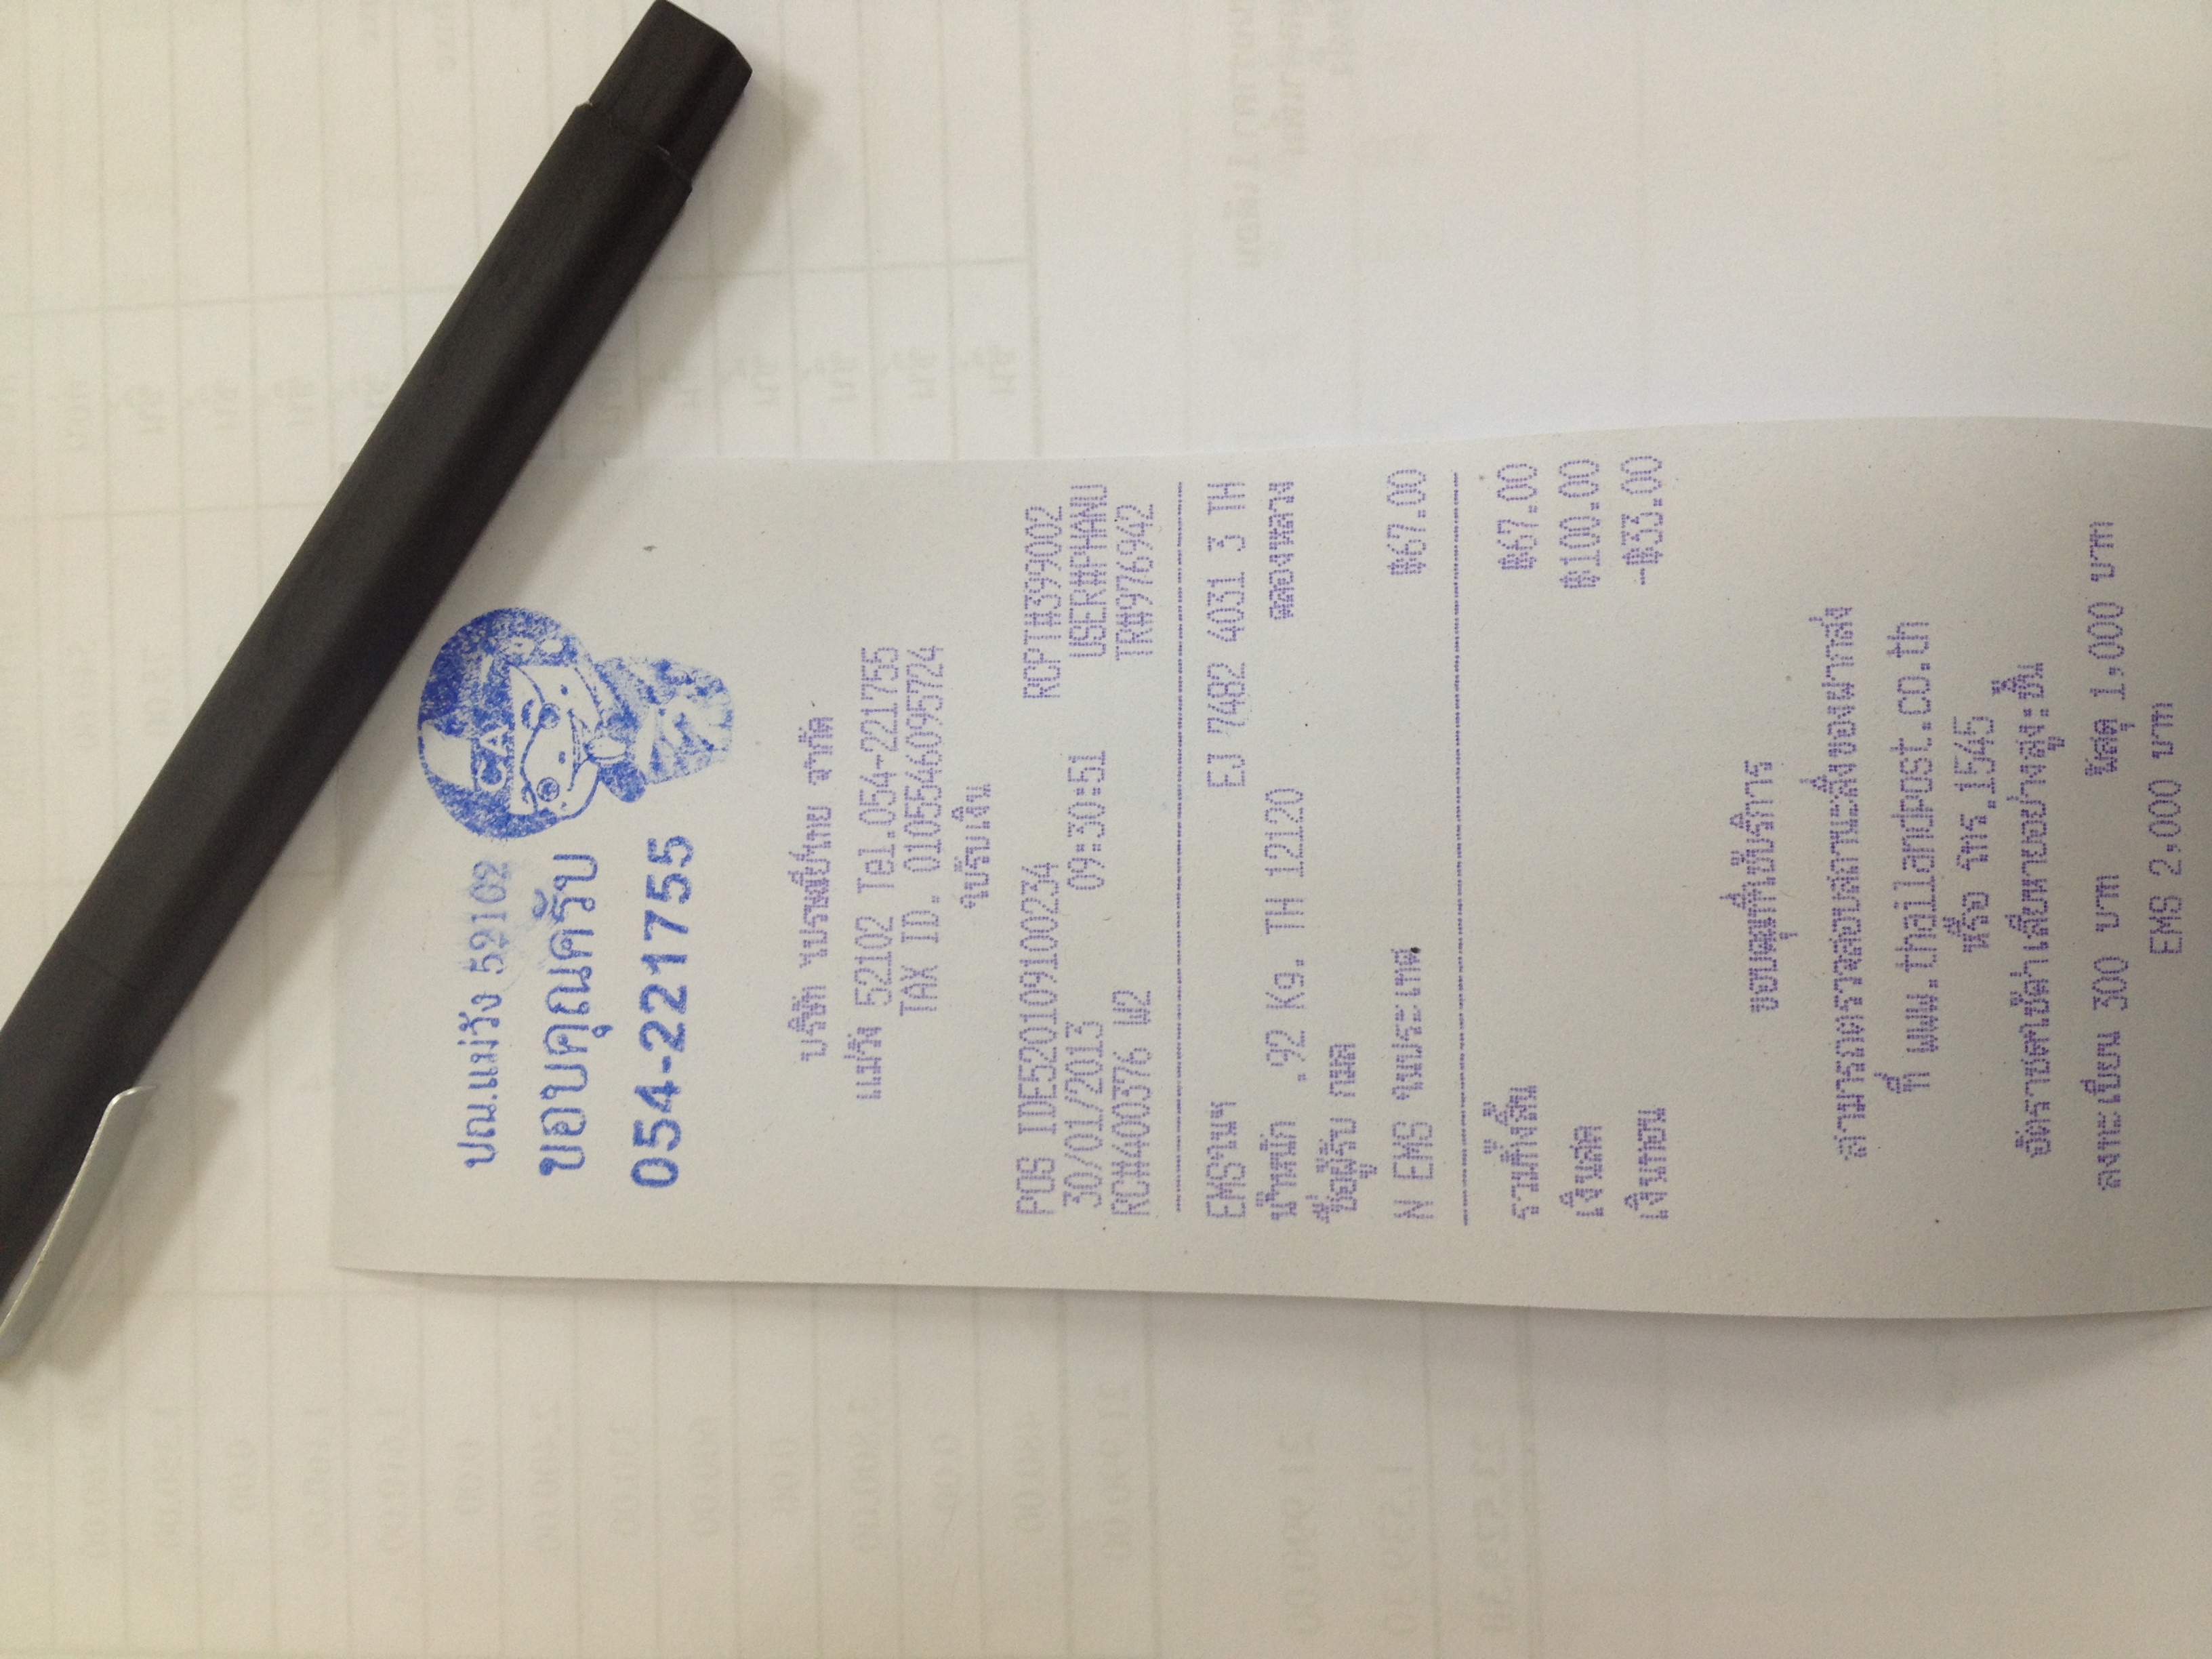 ปณ.แม่วัง 52102
ขอบคุณครับ
054-221755
CA
บริษัท ไปรษณีย์ไทย จำกัด
แม่วัง 52102 Tel.054-221755
TAX ID. 0105546095724
ใบรับเงิน
POS IDE520109100234 RCPT#399002
30/01/2013 09:30:51 USER#PHANU
RC#400376 W2 TR#976942
EMSในฯ EJ 7482 4031 3 TH
น้ำหนัก .92 Kg. TH 12120 คลองหลวง
ชื่อผู้รับ กมล
N EMS ในประเทศ ฿67.00
รวมทั้งสิ้น ฿67.00
เงินสด ฿100.00
เงินทอน -฿33.00
ขอบคุณที่ใช้บริการ
สามารถตรวจสอบสถานะสิ่งของฝากส่ง
ที่ www.thailandpost.co.th
หรือ โทร.1545
อัตราชดใช้ค่าเสียหายอย่างสูง:ชิ้น
ลงทะเบียน 300 บาท พัสดุ 1,000 บาท
EMS 2,000 บาท